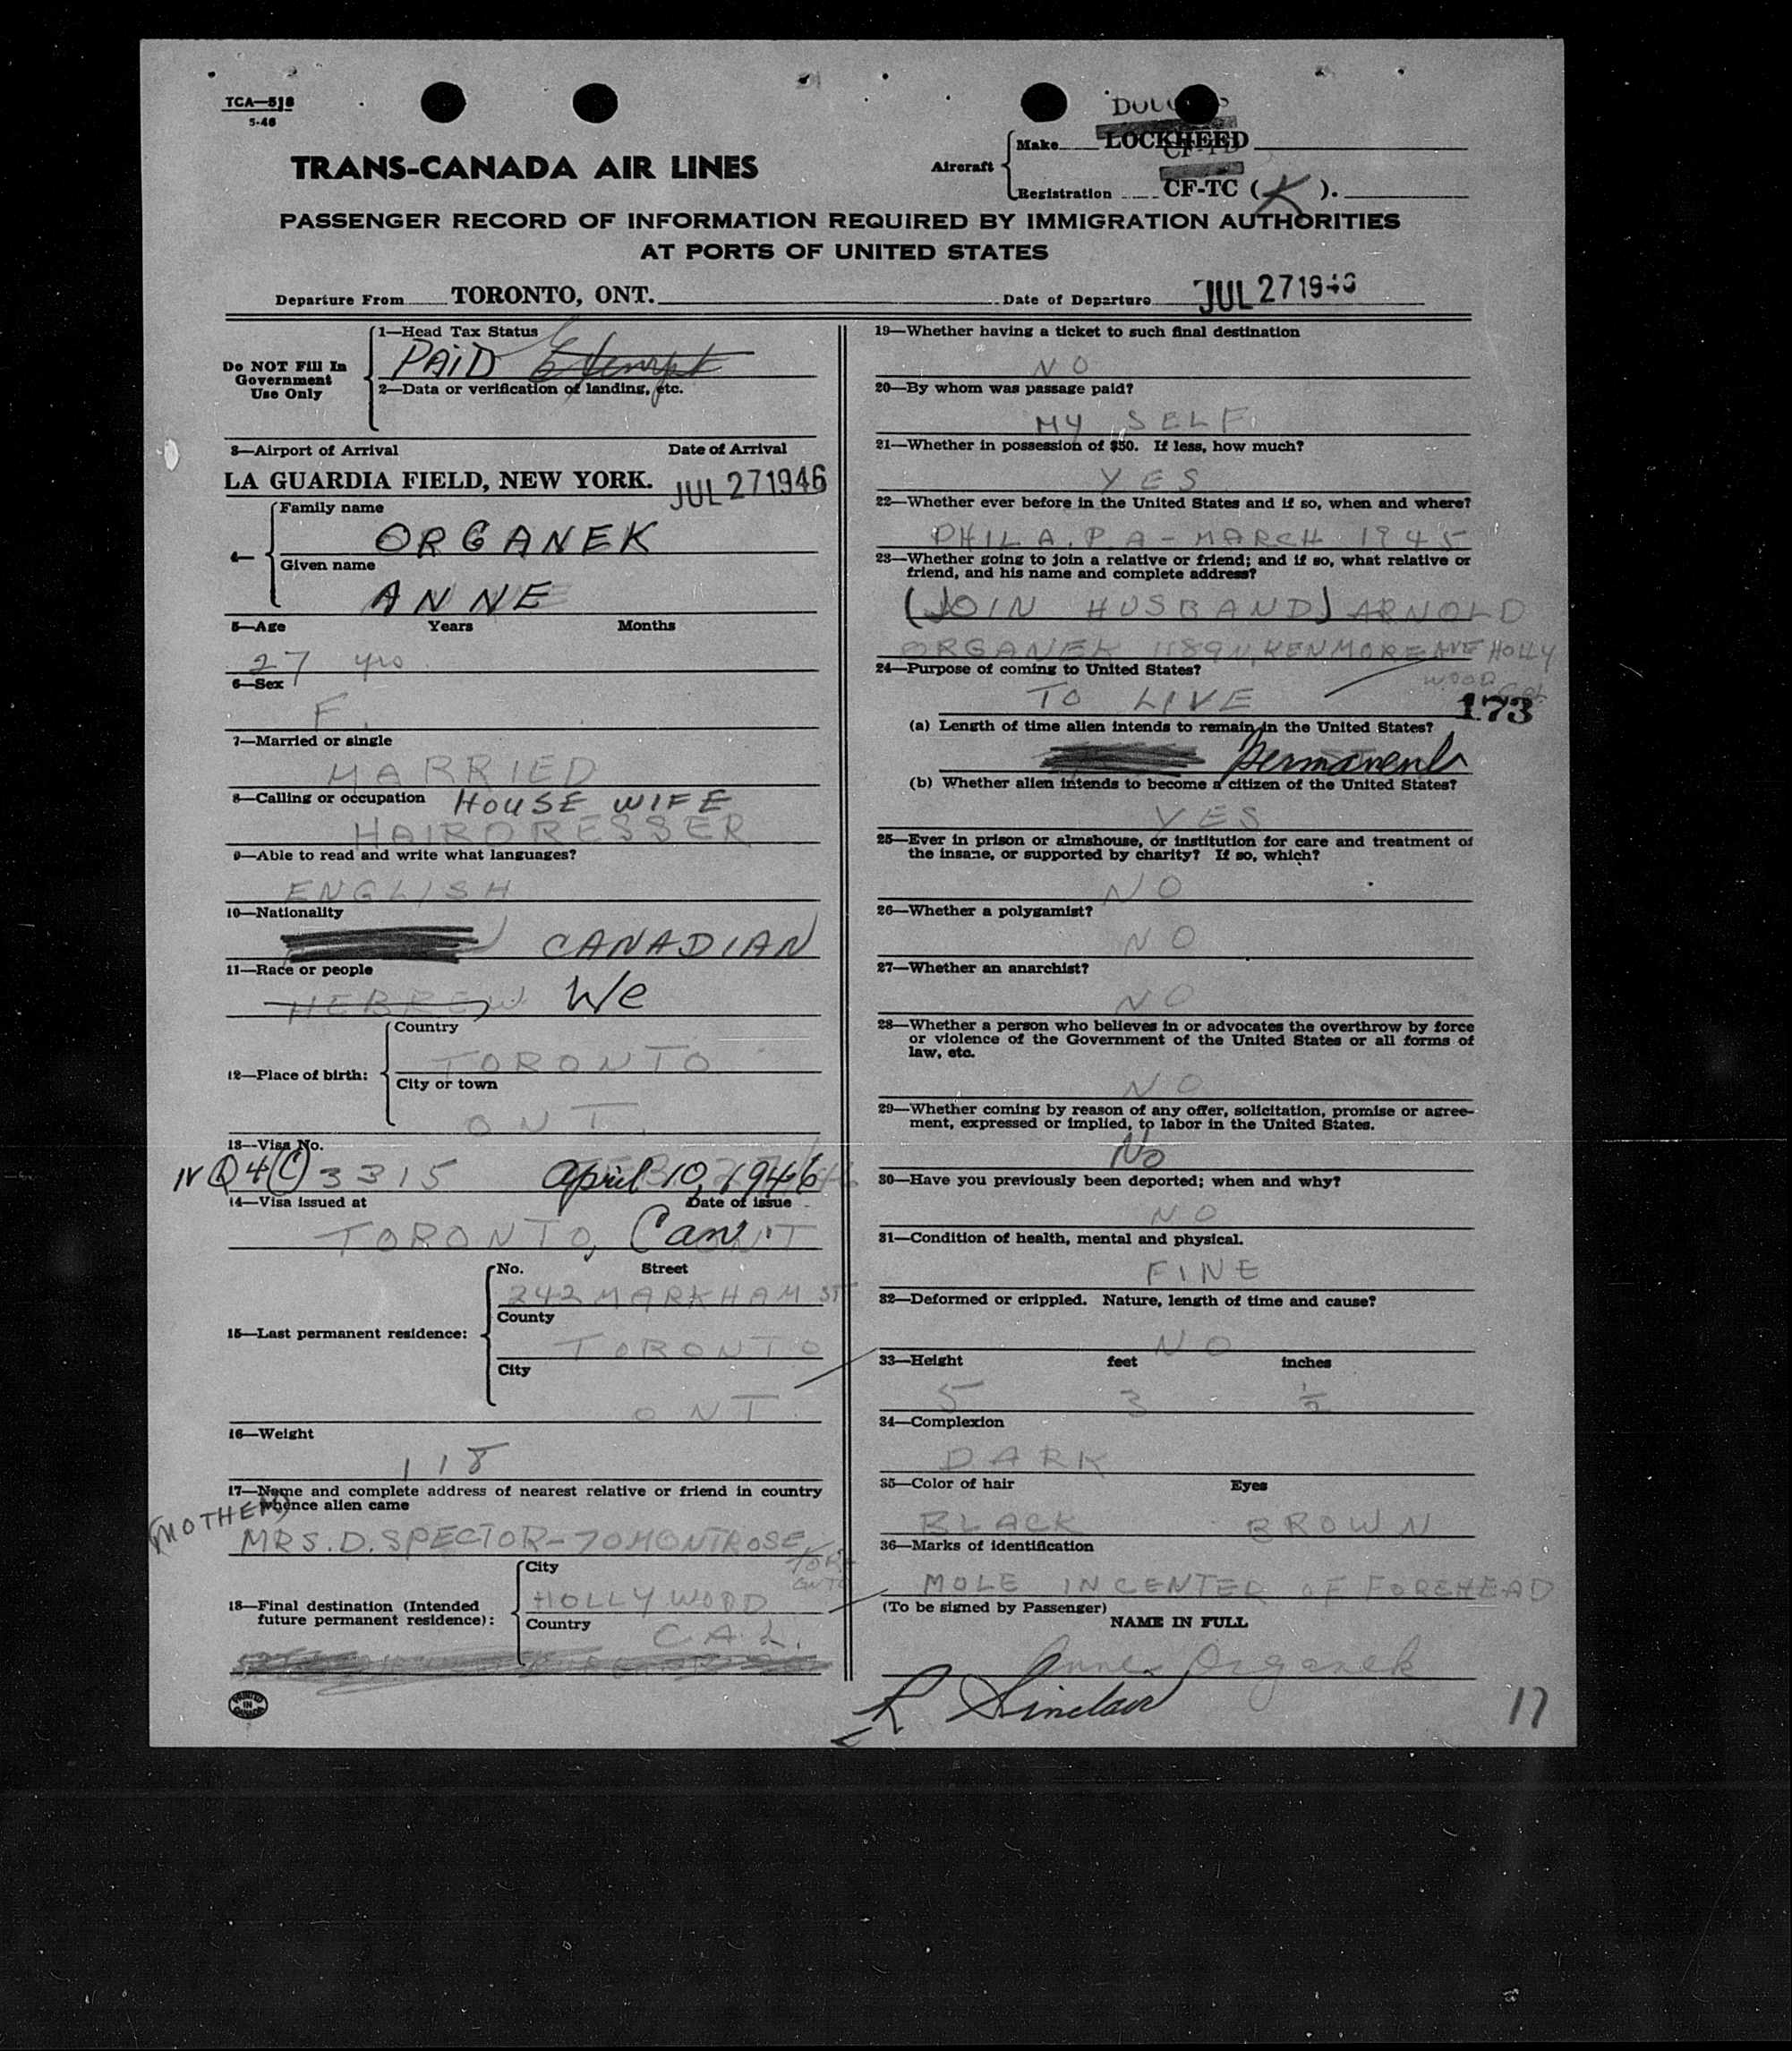 TCA—518
5-46
TRANS-CANADA AIR LINES
Aircraft
Make LOCKHEED
CF-TD
Registration CF-TC (K).
PASSENGER RECORD OF INFORMATION REQUIRED BY IMMIGRATION AUTHORITIES
AT PORTS OF UNITED STATES
Departure From TORONTO, ONT. Date of Departure JUL 27 1946
Do NOT Fill In
Government
Use Only
1—Head Tax Status
PAID Exempt
2—Data or verification of landing, etc.
3—Airport of Arrival Date of Arrival
LA GUARDIA FIELD, NEW YORK. JUL 27 1946
4—
Family name
ORGANEK
Given name
ANNE
5—Age Years Months
27 yrs
6—Sex
F.
7—Married or single
MARRIED
8—Calling or occupation HOUSE WIFE
HAIRDRESSER
9—Able to read and write what languages?
ENGLISH
10—Nationality
CANADIAN
11—Race or people
HEBREW We
12—Place of birth:
Country
TORONTO
City or town
ONT.
13—Visa No.
IV Q4(C) 3315 April 10, 1946
14—Visa issued at Date of issue
TORONTO, Can. ONT
15—Last permanent residence:
No. Street
242 MARKHAM ST
County
TORONTO
City
ONT.
16—Weight
118
17—Name and complete address of nearest relative or friend in country
whence alien came
(MOTHER)
MRS. D. SPECTOR - 70 MONTROSE
18—Final destination (Intended
future permanent residence):
City
HOLLYWOOD
Country
CAL.
PRINTED
IN
CANADA
19—Whether having a ticket to such final destination
NO
20—By whom was passage paid?
MY SELF
21—Whether in possession of $50. If less, how much?
YES
22—Whether ever before in the United States and if so, when and where?
PHILA. P.A - MARCH 1945
23—Whether going to join a relative or friend; and if so, what relative or
friend, and his name and complete address?
(JOIN HUSBAND) ARNOLD
ORGANEK 1189 N. KENMORE AVE HOLLY
WOOD Cal
24—Purpose of coming to United States?
TO LIVE
173
(a) Length of time alien intends to remain in the United States?
Permanent
(b) Whether alien intends to become a citizen of the United States?
YES
25—Ever in prison or almshouse, or institution for care and treatment of
the insane, or supported by charity? If so, which?
NO
26—Whether a polygamist?
NO
27—Whether an anarchist?
NO
28—Whether a person who believes in or advocates the overthrow by force
or violence of the Government of the United States or all forms of
law, etc.
NO
29—Whether coming by reason of any offer, solicitation, promise or agree-
ment, expressed or implied, to labor in the United States.
No
30—Have you previously been deported; when and why?
NO
31—Condition of health, mental and physical.
FINE
32—Deformed or crippled. Nature, length of time and cause?
NO
33—Height feet inches
5 3 ½
34—Complexion
DARK
35—Color of hair Eyes
BLACK BROWN
36—Marks of identification
MOLE IN CENTER OF FOREHEAD
(To be signed by Passenger)
NAME IN FULL
Anne Organek
R Sinclair
17